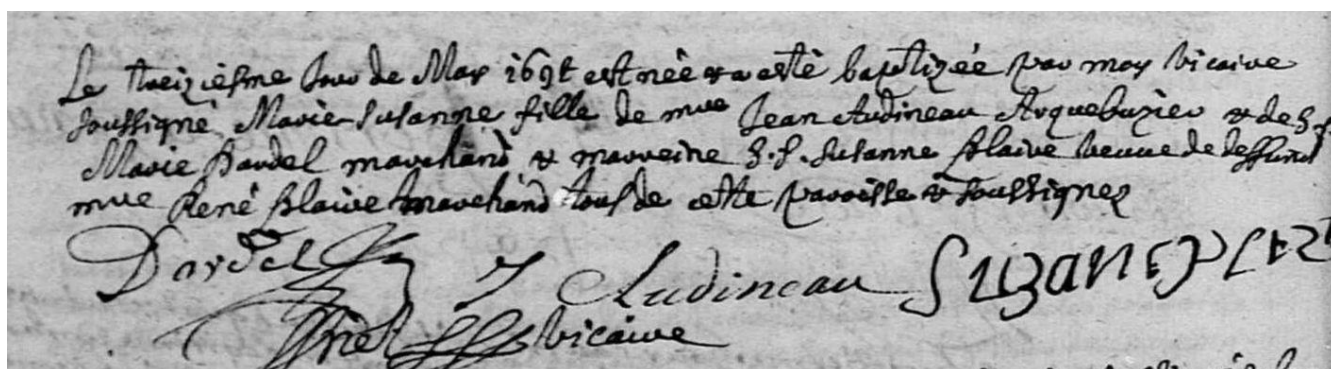 Le treiziesme Jour de May 169 est née & a esté baptizée par moy vicaire
soussigné Marie Susanne fille de mre Jean Audineau Arquebuzier & de h. f.
Marie Dardel marchand & marreine h. f. Susanne Plaive veuve de deffunct
mre René Plaive marchand tous de cette paroisse & soussignez
Dardel J Audineau Suzane
vicaire